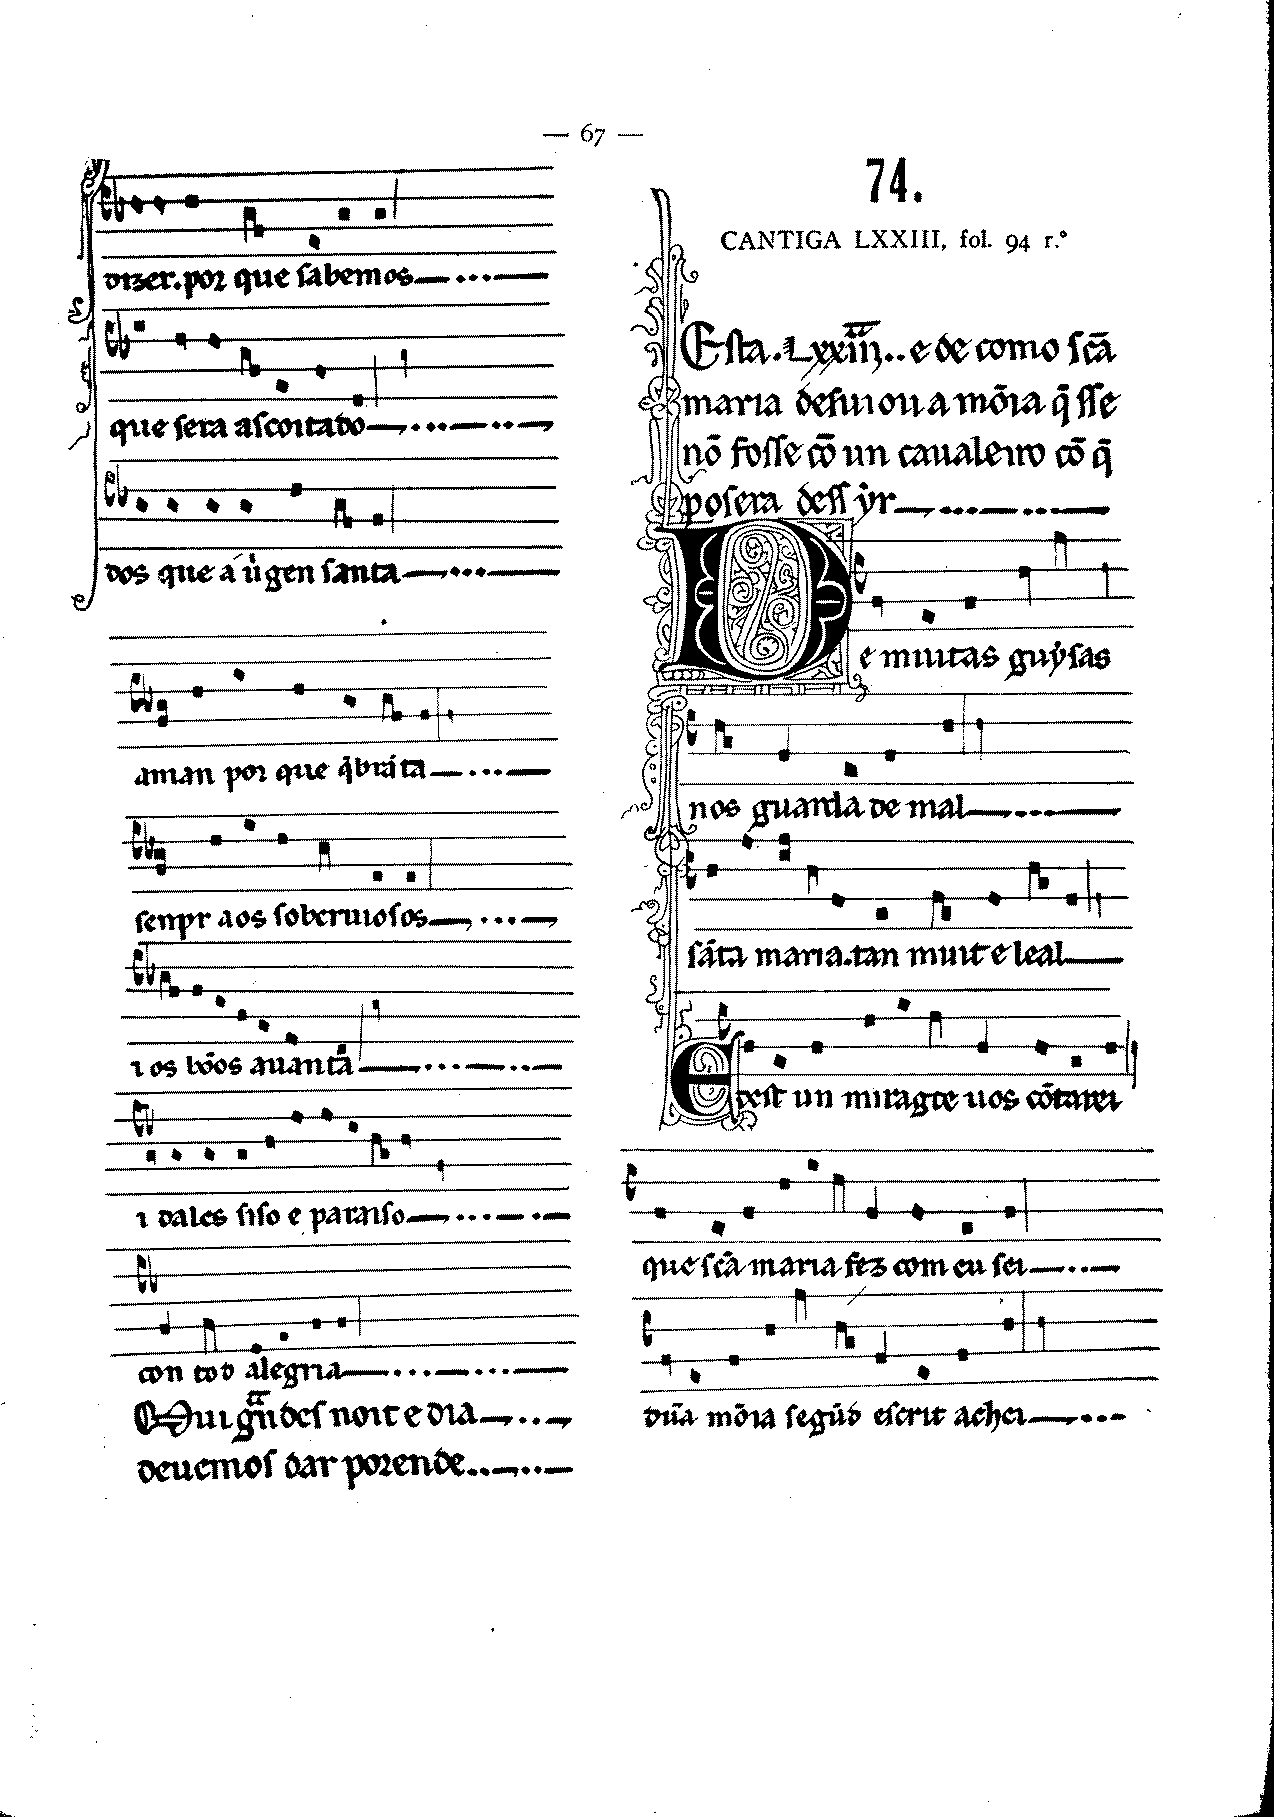 — 67 —
dizer. por que sabemos
que sera ascoitado
dos que a uigen santa
aman por que q̄brãta
senpr aos soberuiosos
i os bõos auantã
i dales siso e paraiso
con tod alegria
Qui grãdes noit e dia
deuemos dar porende..
74.
CANTIGA LXXIII, fol. 94 r.°
Esta .Lxxiiij.. e de como scã
maria desuiou a mõia q̄ sse
nõ fosse cõ un caualeiro cõ q̄
posera dess ẏr
De muitas guẏsas
nos guarda de mal
sãta maria. tan muit e leal
E dest un miragre uos cõtarei
que scã maria fez com eu sei
dũa mõia segũd escrit achei